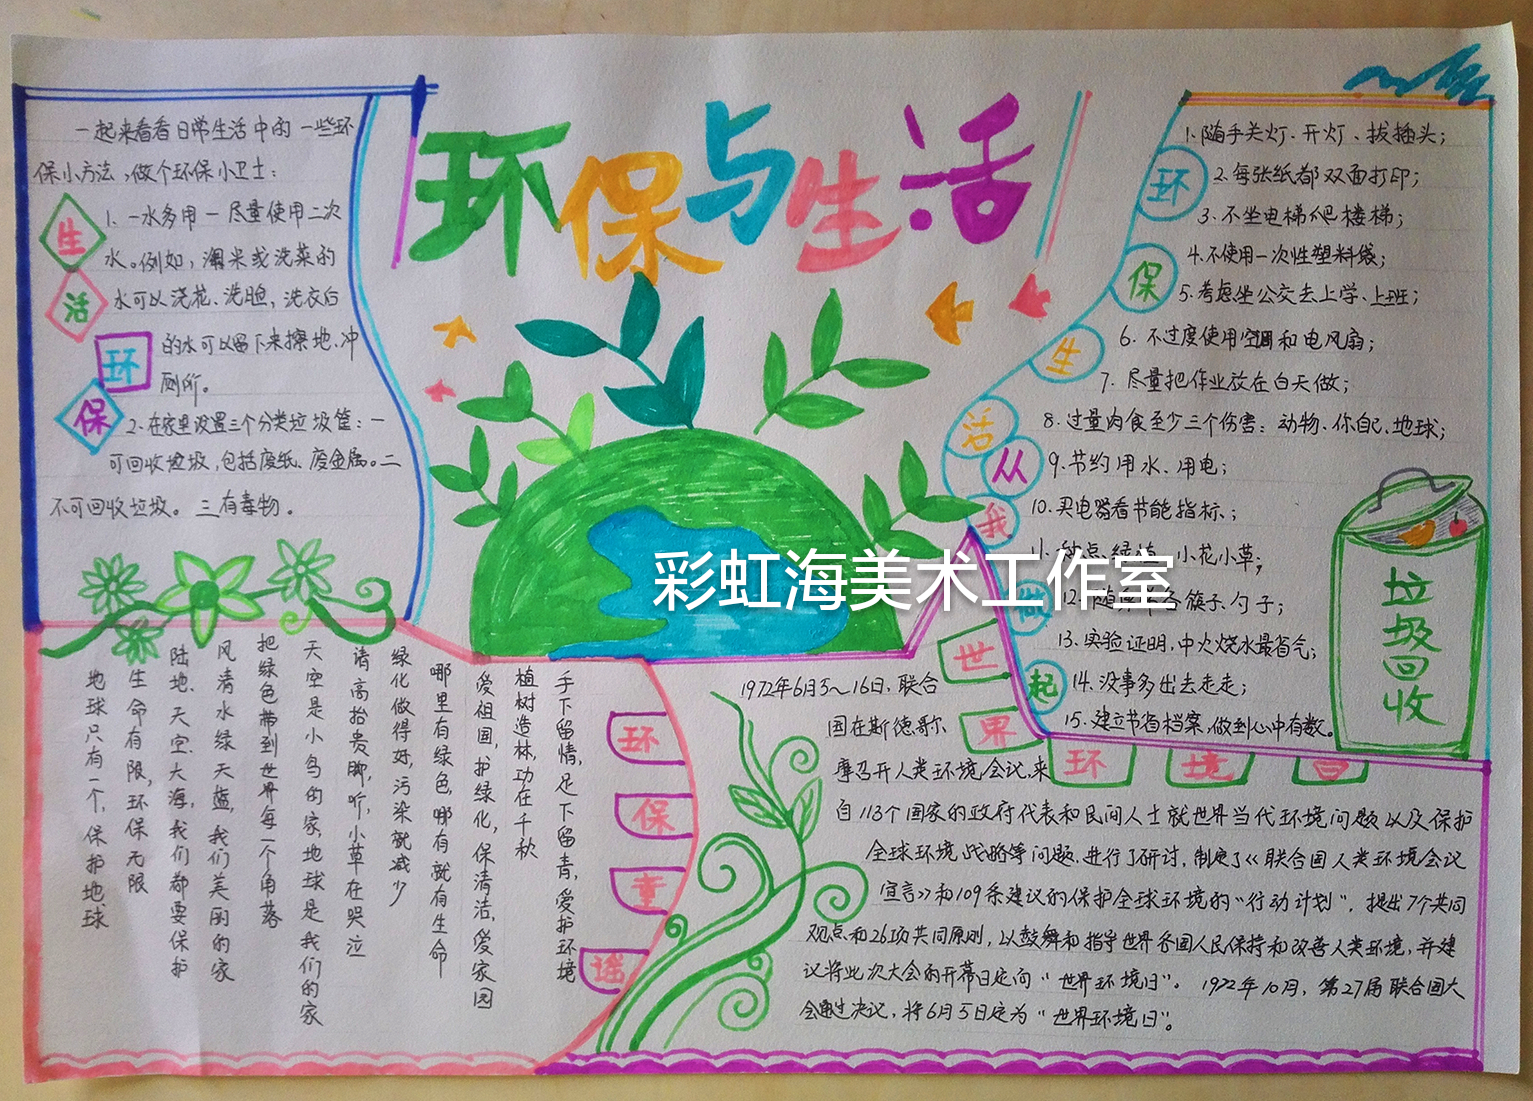 环保与生活
一起来看看日常生活中的一些环
保小方法,做个环保小卫士:
生活环保
1. 一水多用一尽量使用二次
水。例如,淘米或洗菜的
水可以浇花、洗脸,洗衣后
的水可以留下来擦地、冲
厕所。
2.在家里设置三个分类垃圾筐:一
可回收垃圾,包括废纸、废金属。二
不可回收垃圾。三有毒物。
环保生活从我做起
1.随手关灯、开灯、拔插头;
2.每张纸都双面打印;
3.不坐电梯爬楼梯;
4.不使用一次性塑料袋;
5.考虑坐公交去上学、上班;
6.不过度使用空调和电风扇;
7.尽量把作业放在白天做;
8.过量肉食至少三个伤害:动物、你自己、地球;
9.节约用水、用电;
10.买电器看节能指标;
小花小草;
筷子、勺子;
13.实验证明,中火烧水最省气;
14.没事多出去走走;
15.建立节省档案,做到心中有数。
垃圾回收
彩虹海美术工作室
环保童谣
手下留情,足下留青,爱护环境
植树造林,功在千秋
爱祖国,护绿化,保清洁,爱家园
哪里有绿色,哪有就有生命
绿化做得好,污染就减少
请高抬贵脚,听,小草在哭泣
天空是小鸟的家,地球是我们的家
把绿色带到世界每一个角落
风清水绿天蓝,我们美丽的家
陆地、天空、大海,我们都要保护
生命有限,环保无限
地球只有一个,保护地球
世界环境日
1972年6月5~16日,联合
国在斯德哥尔
摩召开人类环境会议,来
自113个国家的政府代表和民间人士就世界当代环境问题以及保护
全球环境战略等问题,进行了研讨,制定了《联合国人类环境会议
宣言》和109条建议的保护全球环境的“行动计划”,提出7个共同
观点和26项共同原则,以鼓舞和指导世界各国人民保持和改善人类环境,并建
议将此次大会的开幕日定为“世界环境日”。1972年10月,第27届联合国大
会通过决议,将6月5日定为“世界环境日”。